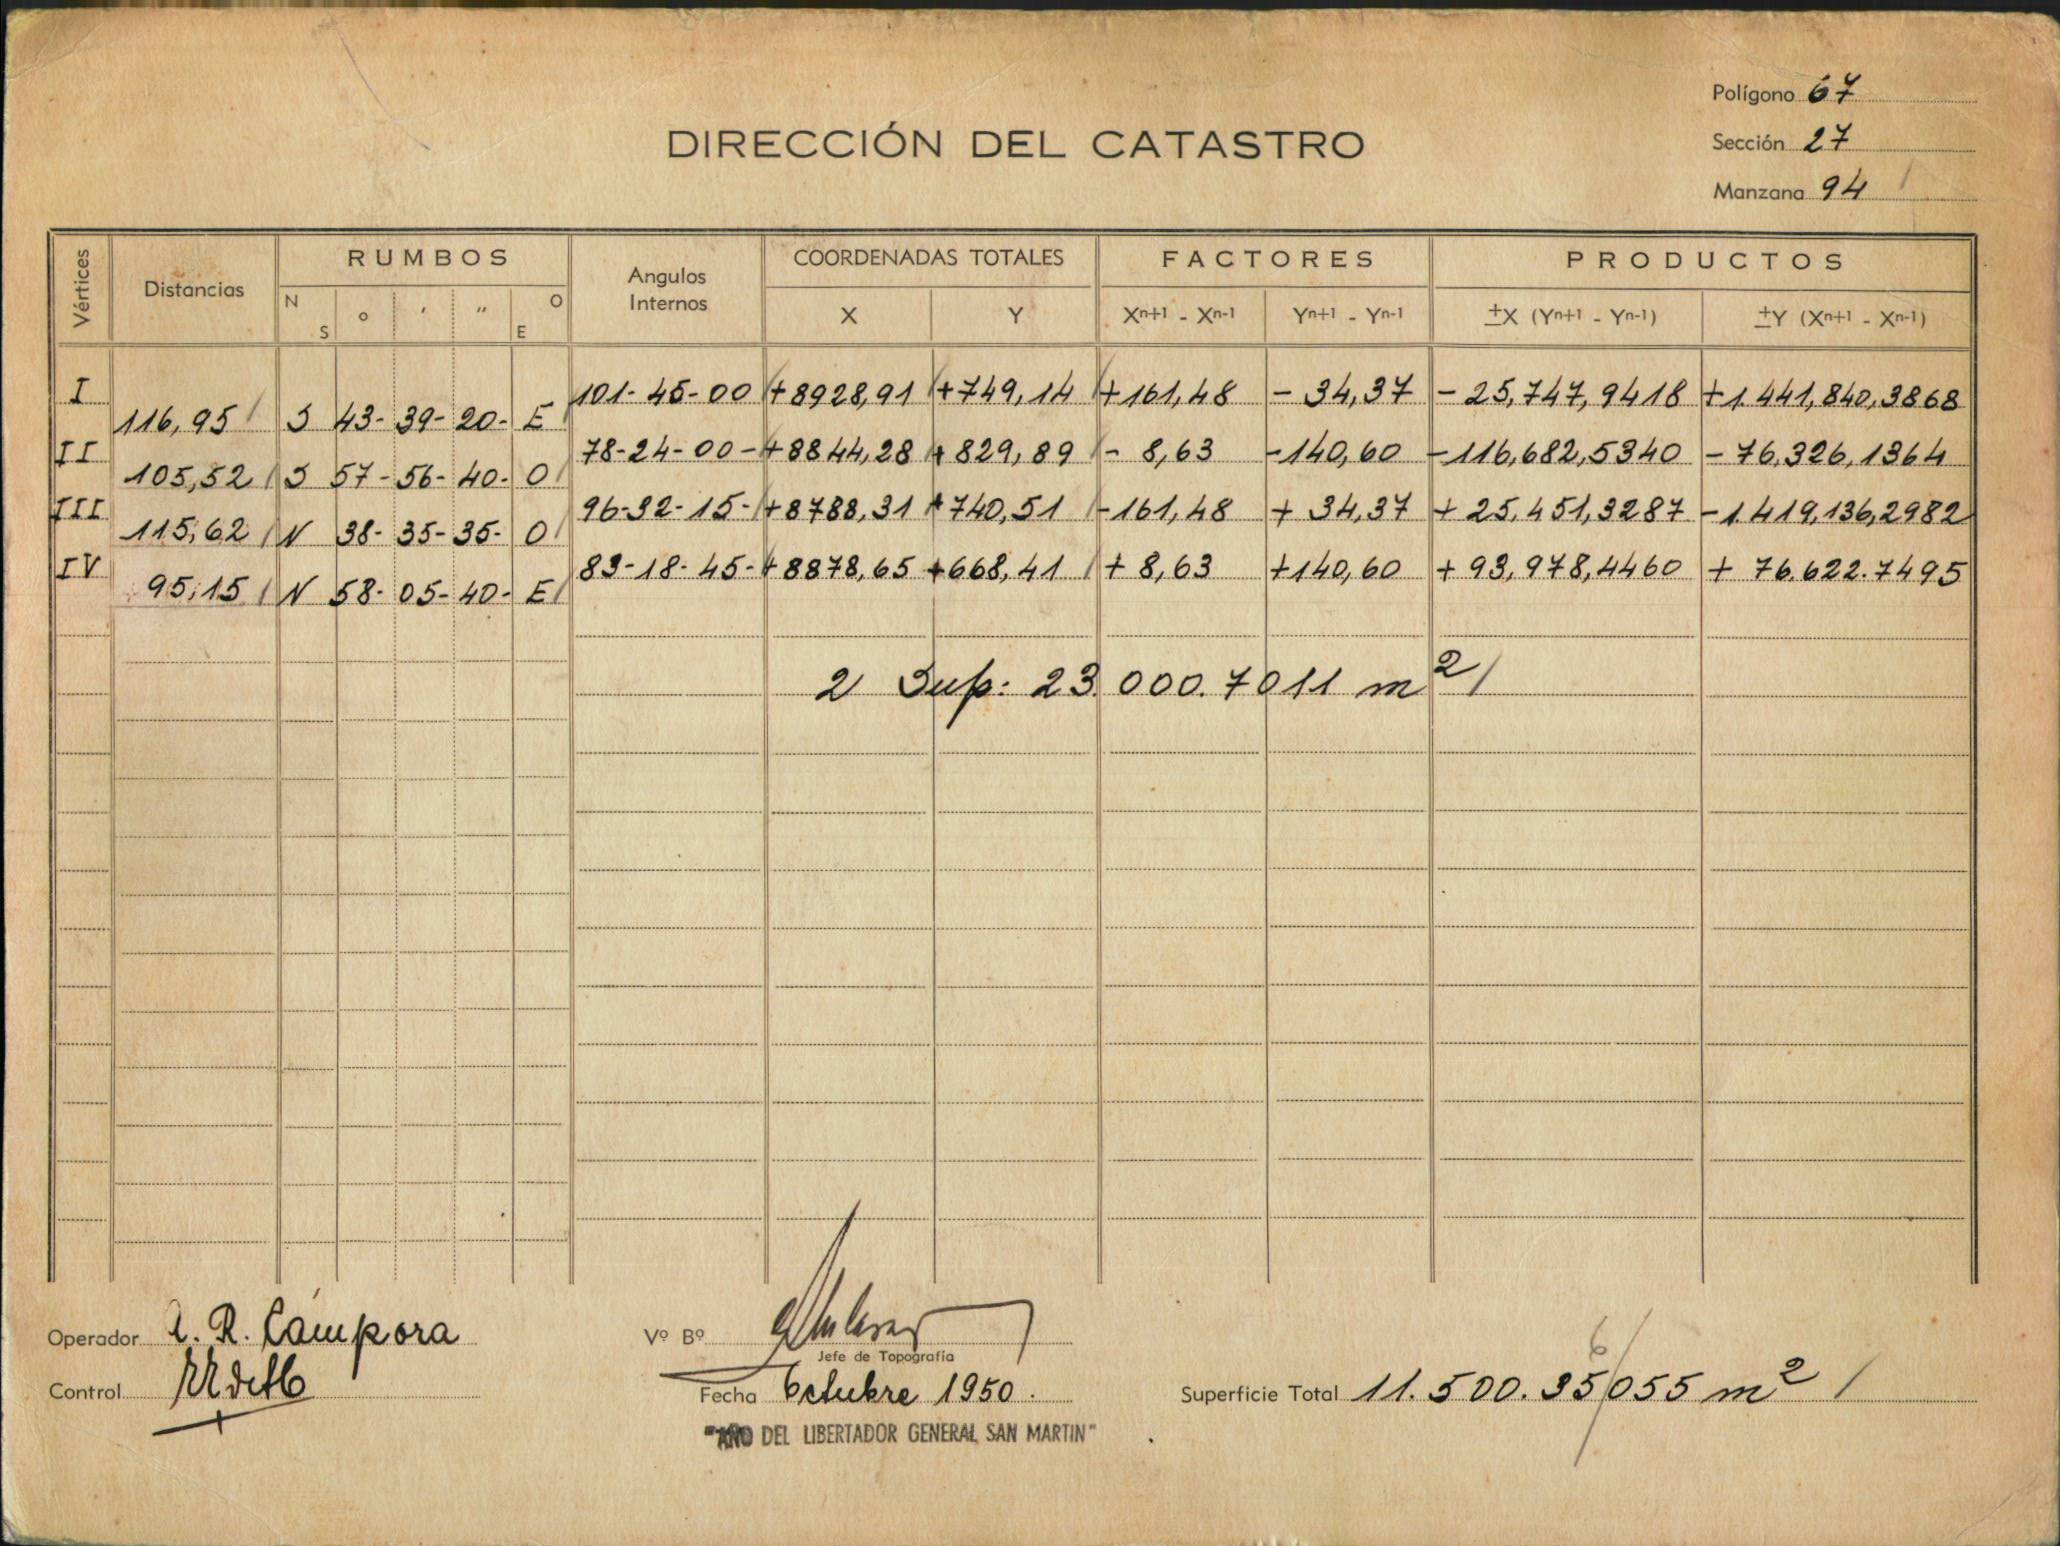 Polígono 67
DIRECCIÓN DEL CATASTRO
Sección 27
Manzana 94
Vértices Distancias RUMBOS Angulos Internos COORDENADAS TOTALES FACTORES PRODUCTOS
N S ° ′ ″ O E X Y Xⁿ⁺¹ - Xⁿ⁻¹ Yⁿ⁺¹ - Yⁿ⁻¹ ±X (Yⁿ⁺¹ - Yⁿ⁻¹) ±Y (Xⁿ⁺¹ - Xⁿ⁻¹)
I 101-45-00 +8928,91 +749,14 +161,48 - 34,37 - 25,747,9418 +1.441,840,3868
116,95 S 43- 39- 20- E
II 78-24-00- +8844,28 +829,89 - 8,63 -140,60 -116,682,5340 - 76,326,1364
105,52 S 57- 56- 40- O
III 96-32-15- +8788,31 +740,51 -161,48 + 34,37 + 25,451,3287 -1.419,136,2982
115,62 N 38- 35- 35- O
IV 83-18-45- +8878,65 +668,41 + 8,63 +140,60 + 93,978,4460 + 76.622.7495
95,15 N 58- 05- 40- E
2 Sup: 23.000.7011 m²
Operador A. R. Cámpora
Vº Bº
Jefe de Topografía
Control
Fecha Octubre 1950.
6
Superficie Total 11.500.35055 m²
"AÑO DEL LIBERTADOR GENERAL SAN MARTIN"